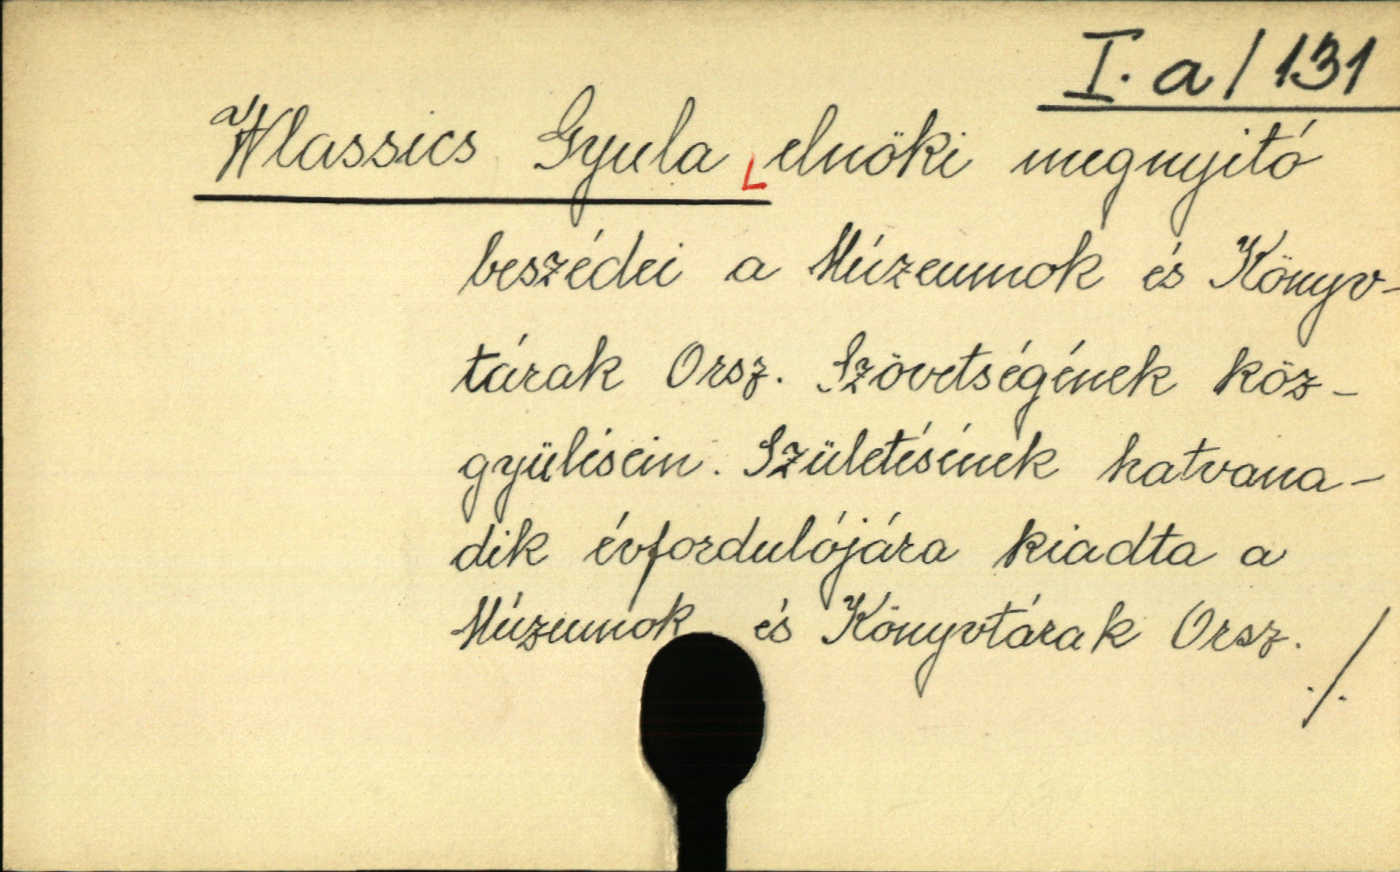 I. a/131
Wlassics Gyula elnöki megnyitó
beszédei a Múzeumok és Könyv-
tárak Orsz. Szövetségének köz-
gyülésein. Születésének hatvana-
dik évfordulójára kiadta a
Múzeumok és Könyvtárak Orsz.
./.